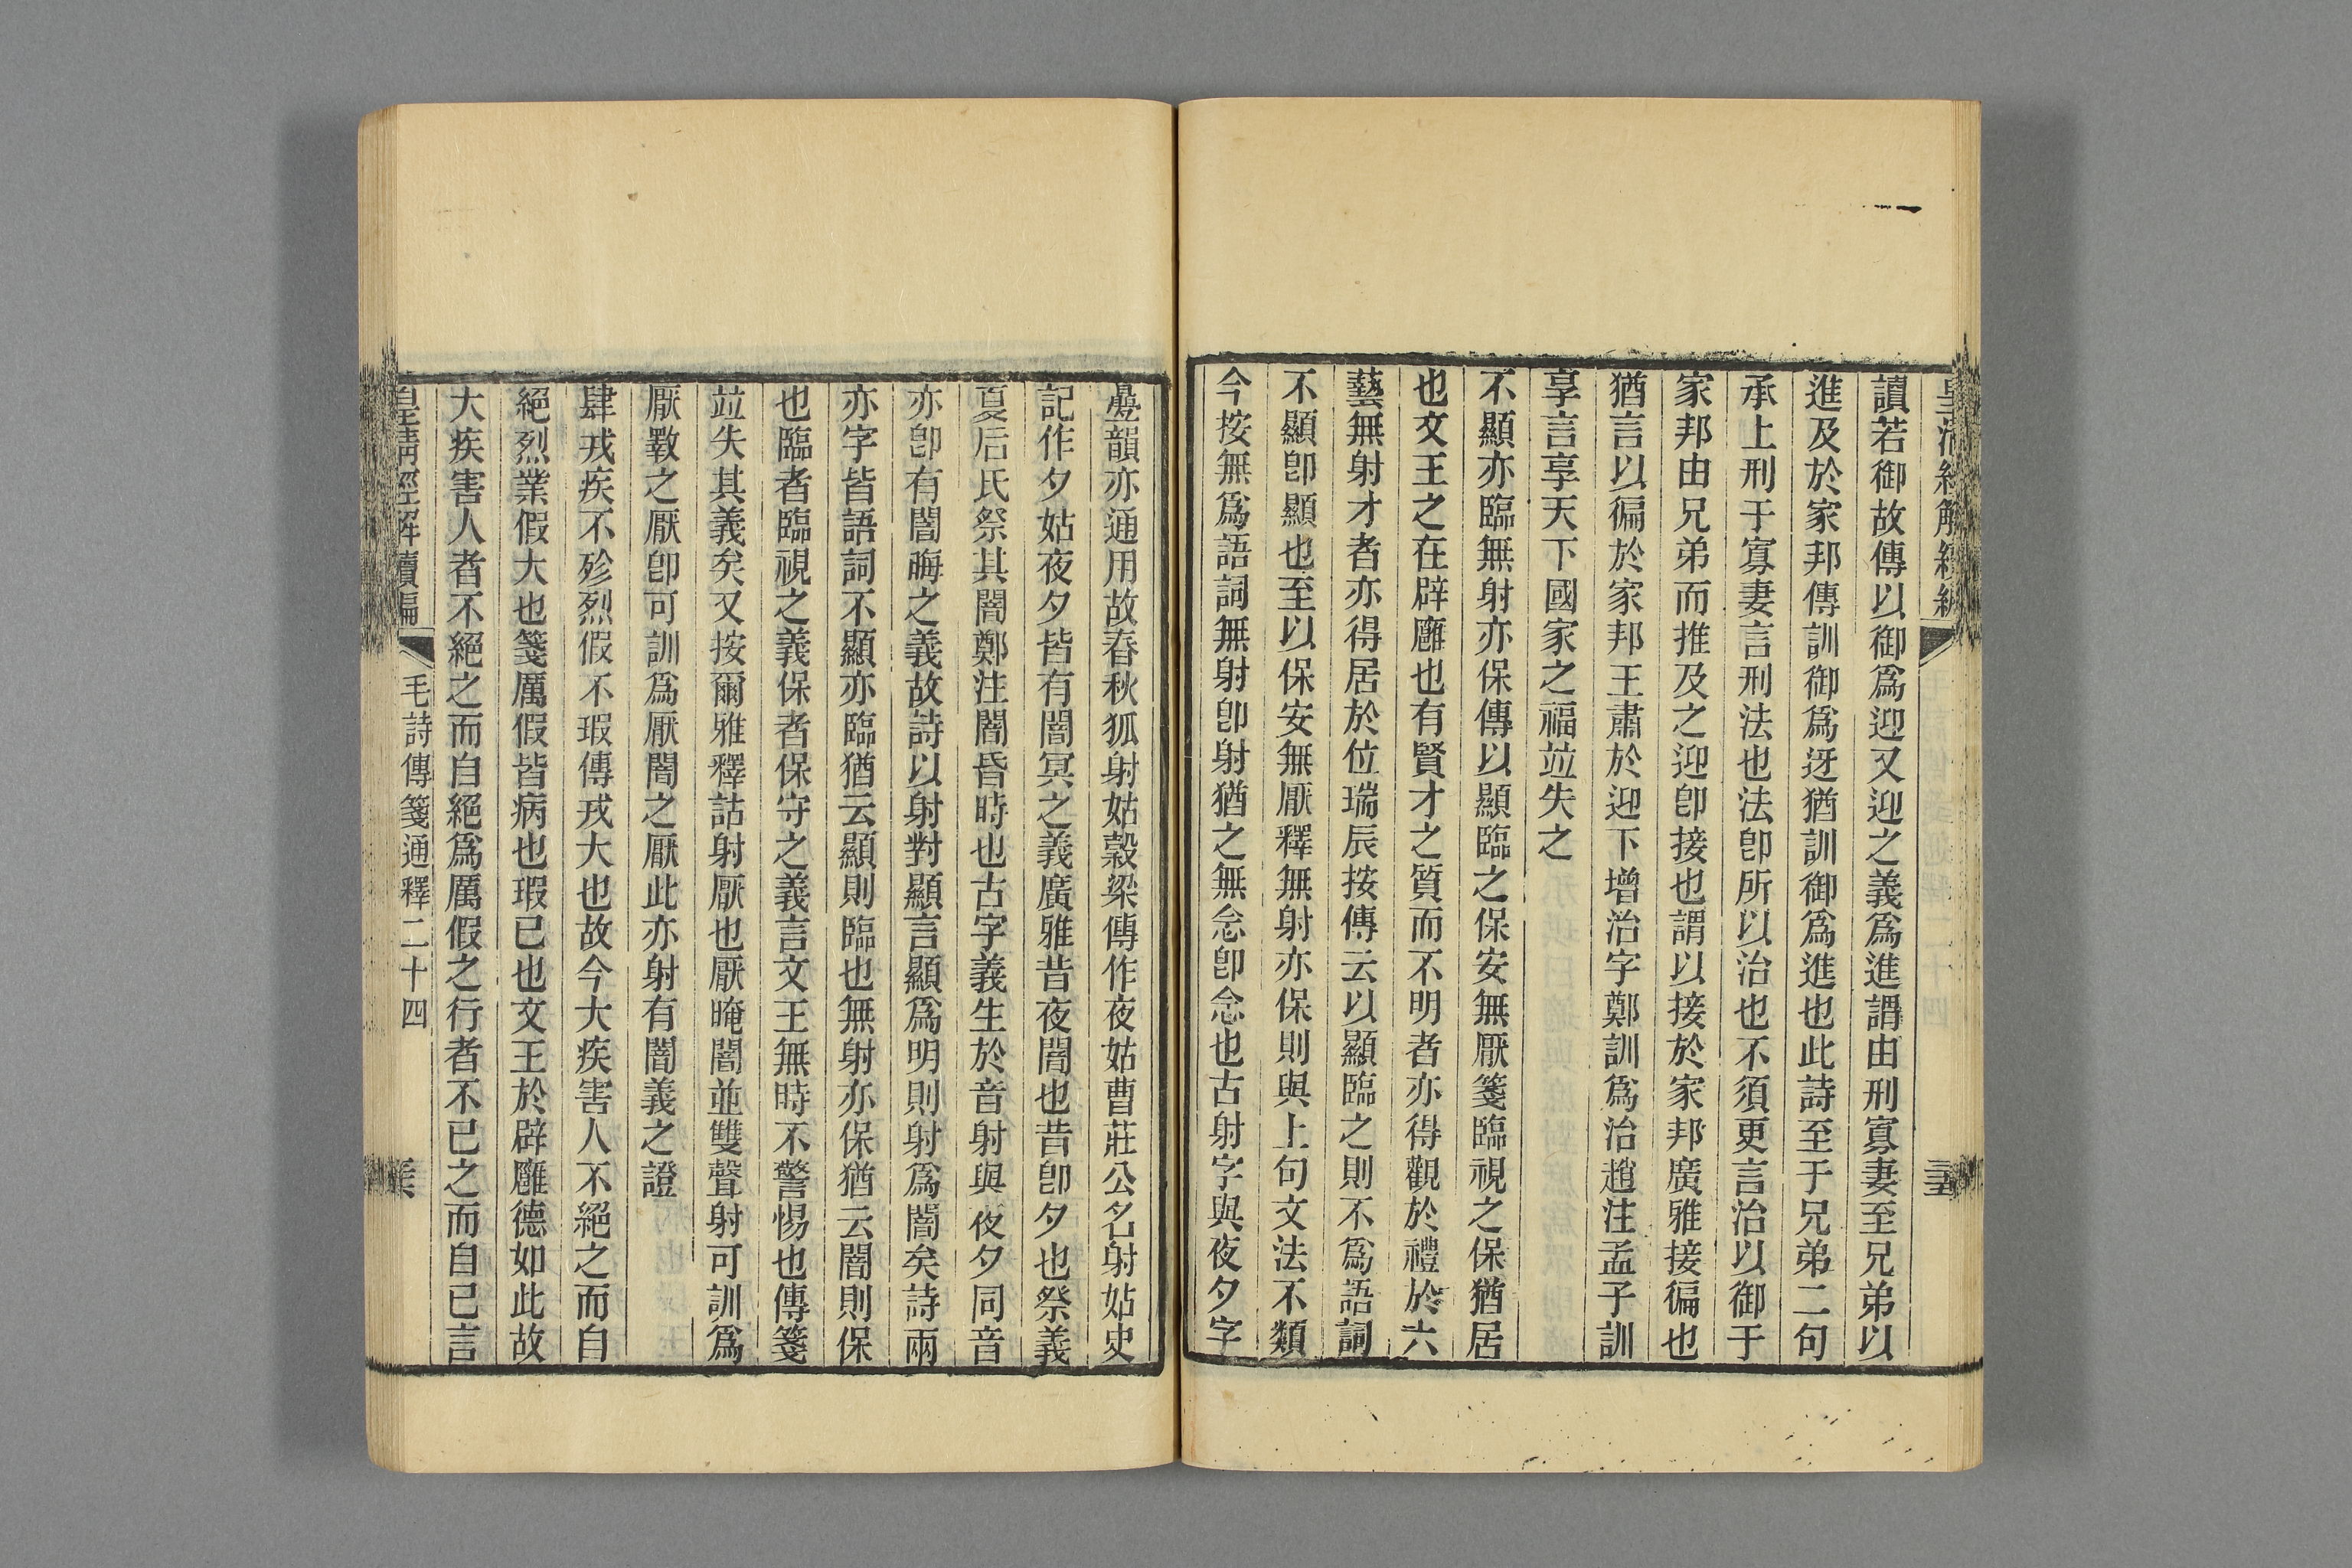 皇清經解續編
三五
讀若御故傳以御爲迎又迎之義爲進謂由刑寡妻至兄弟以
進及於家邦傳訓御爲迓猶訓御爲進也此詩至于兄弟二句
承上刑于寡妻言刑法也法卽所以治也不須更言治以御于
家邦由兄弟而推及之迎卽接也謂以接於家邦廣雅接徧也
猶言以徧於家邦王肅於迎下增治字鄭訓爲治趙注孟子訓
享言享天下國家之福竝失之
不顯亦臨無射亦保傳以顯臨之保安無厭箋臨視之保猶居
也文王之在辟廱也有賢才之質而不明者亦得觀於禮於六
藝無射才者亦得居於位瑞辰按傳云以顯臨之則不爲語詞
不顯卽顯也至以保安無厭釋無射亦保則與上句文法不類
今按無爲語詞無射卽射猶之無念卽念也古射字與夜夕字
疊韻亦通用故春秋狐射姑穀梁傳作夜姑曹莊公名射姑史
記作夕姑夜夕皆有闇冥之義廣雅昔夜闇也昔卽夕也祭義
夏后氏祭其闇鄭注闇昏時也古字義生於音射與夜夕同音
亦卽有闇晦之義故詩以射對顯言顯爲明則射爲闇矣詩兩
亦字皆語詞不顯亦臨猶云顯則臨也無射亦保猶云闇則保
也臨者臨視之義保者保守之義言文王無時不警惕也傳箋
竝失其義矣又按爾雅釋詁射厭也厭晻闇並雙聲射可訓爲
厭斁之厭卽可訓爲厭闇之厭此亦射有闇義之證
肆戎疾不殄烈假不瑕傳戎大也故今大疾害人不絕之而自
絕烈業假大也箋厲假皆病也瑕已也文王於辟廱德如此故
大疾害人者不絕之而自絕爲厲假之行者不已之而自已言
皇清經解續編
毛詩傳箋通釋二十四